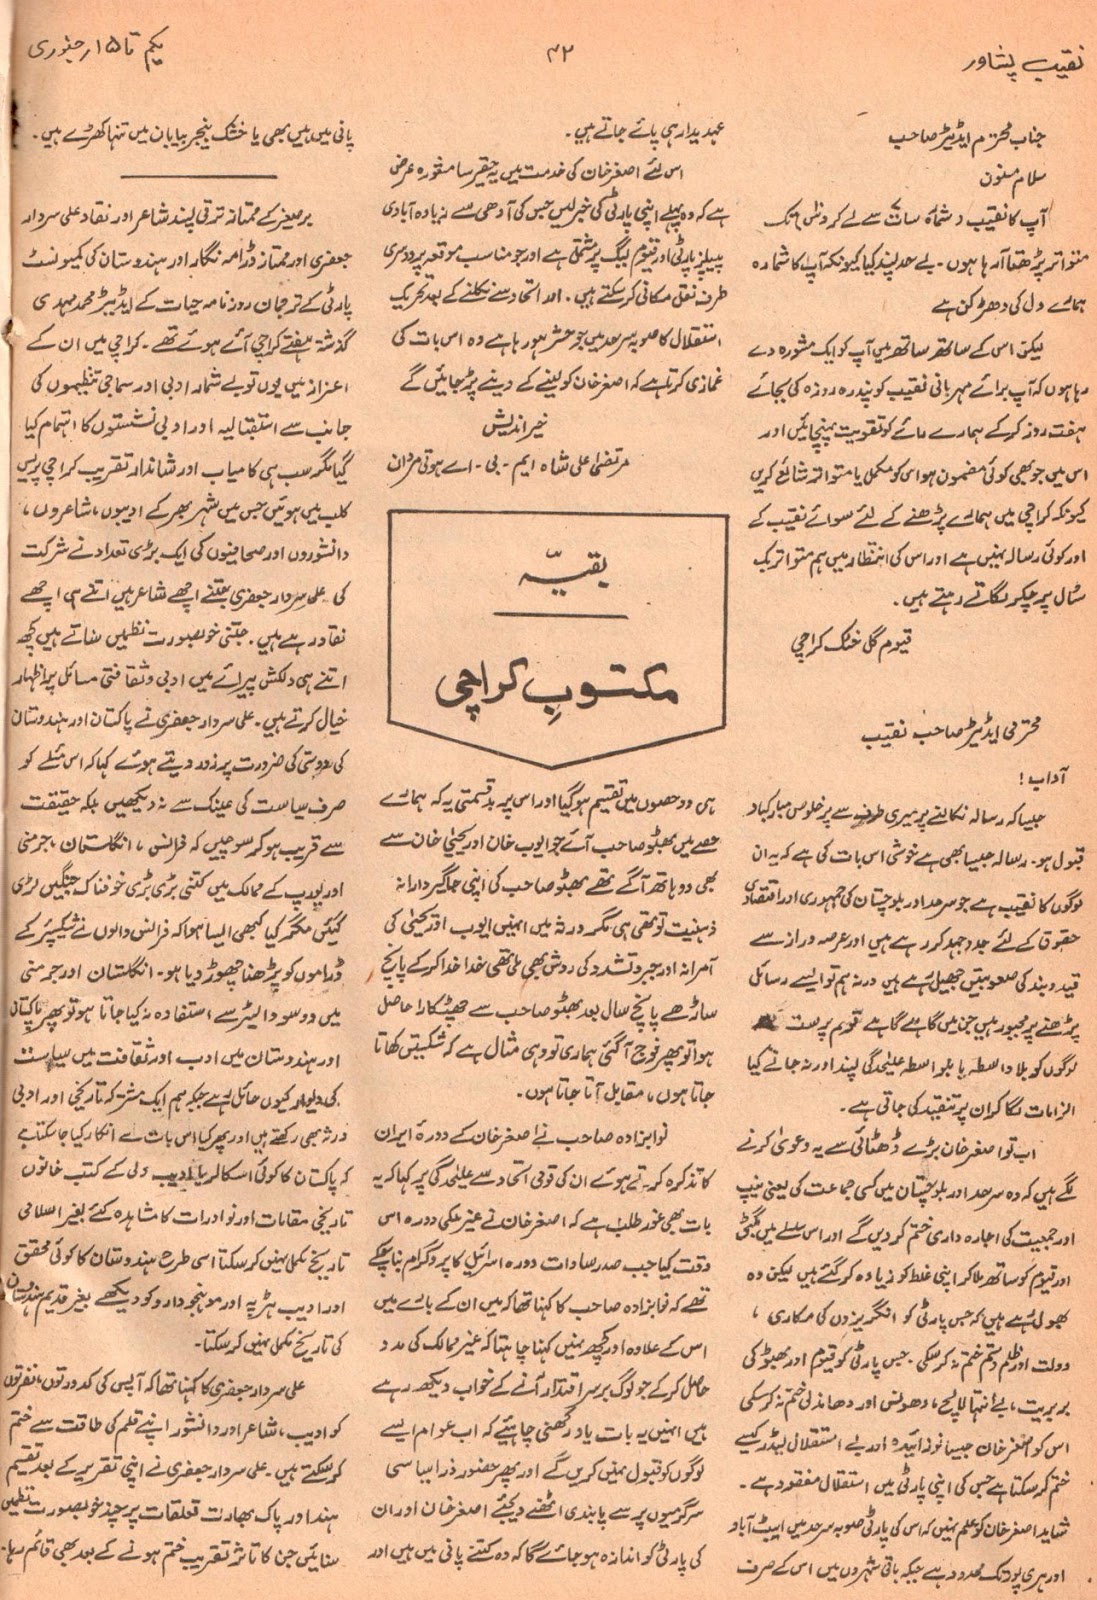 نقیب پشاور
۴۲
یکم تا ۱۵ر جنوری
جناب محترم ایڈیٹر صاحب
سلام مسنون
آپ کا نقیب شمارہ سات سے لے کر دس تک
متواتر پڑھتا آرہا ہوں۔ بے حد پسند کیا کیونکہ آپ کا شمارہ
ہمارے دل کی دھڑکن ہے
لیکن اس کے ساتھ ساتھ میں آپ کو ایک مشورہ دے
رہا ہوں کہ آپ برائے مہربانی نقیب کو پندرہ روزہ کی بجائے
ہفت روزہ کرکے ہمارے رائے کو تقویت پہنچائیں اور
اس میں جو بھی کوئی مضمون ہو اس کو مکمل یا متواتر شائع کریں
کیونکہ کراچی میں ہمارے پڑھنے کے لئے سوائے نقیب کے
اور کوئی رسالہ نہیں ہے اور اس کی انتظار میں ہم متواتر بک
سٹال پر چکر لگاتے رہتے ہیں۔
قیوم گل خٹک کراچی
محترمی ایڈیٹر صاحب نقیب
آداب!
جیسا کہ رسالہ نکالنے پر میری طرف سے پر خلوص مبارکباد
قبول ہو۔ رسالہ جیسا بھی ہے خوشی اس بات کی ہے کہ یہ ان
لوگوں کا نقیب ہے جو سرحد اور بلوچستان کی جمہوری اور اقتصادی
حقوق کے لئے جدوجہد کررہے ہیں اور عرصہ دراز سے
قید و بند کی صعوبتیں جھیل رہے ہیں ورنہ ہم تو ایسے رسائل
پڑھنے پر مجبور ہیں جن میں گاہے گاہے قوم پرست
لوگوں کو بلاواسطہ یا بلواسطہ علیحدگی پسند اور نہ جانے کیا
الزامات لگا کر ان پر تنقید کی جاتی ہے۔
اب تو اصغر خان بڑے ڈھٹائی سے یہ دعویٰ کرنے
لگے ہیں کہ وہ سرحد اور بلوچستان میں کسی جماعت کی یعنی نیپ
اور جمیعت کی اجارہ داری ختم کردیں گے اور اس سلسلے میں بگٹی
اور قیوم کو ساتھ ملا کر اپنی غلط کو زیادہ کر گئے ہیں لیکن وہ
بھول رہے ہیں کہ جس پارٹی کو انگریزوں کی مکاری،
دولت اور ظلم و ستم ختم نہ کرسکی۔ جس پارٹی کو قیوم اور بھٹو کی
بربریت، بے انتہا لالچ، دھونس اور دھاندلی ختم نہ کرسکی
اس کو اصغر خان جیسا نوزائیدہ اور بے استقلال لیڈر کیسے
ختم کرسکتا ہے جس کی اپنی پارٹی میں استقلال مفقود ہے۔
شاید اصغر خان کو علم نہیں کہ اس کی پارٹی صوبہ سرحد میں ایبٹ آباد
اور ہری پور تک محدود ہے جبکہ باقی شہروں میں اس کے صرف
عہدیدار ہی پائے جاتے ہیں۔
اس لئے اصغر خان کی خدمت میں یہ حقیر سا مشورہ عرض
ہے کہ وہ پہلے اپنی پارٹی کی خبر لیں جس کی آدھی سے زیادہ آبادی
پیپلز پارٹی اور قیوم لیگ پر مشتمل ہے اور جو مناسب موقعہ پر دوسری
طرف نقل مکانی کرسکتے ہیں۔ اور اتحاد سے نکلنے کے بعد تحریک
استقلال کا صوبہ سرحد میں جو حشر ہو رہا ہے وہ اس بات کی
غمازی کرتا ہے کہ اصغر خان کو لینے کے دینے پڑ جائیں گے
خیراندیش
مرتضیٰ علی شاہ ایم۔ بی۔ اے ہوتی مردان
بقیہ
مکتوبِ کراچی
ہی دو حصوں میں تقسیم ہوگیا اور اس پر بدقسمتی یہ کہ ہمارے
حصے میں بھٹو صاحب آئے جو ایوب خان اور یحییٰ خان سے
بھی دو ہاتھ آگے تھے بھٹو صاحب کی اپنی جاگیردارانہ
ذہنیت تو تھی ہی مگر ورثہ میں انہیں ایوب اور یحییٰ کی
آمرانہ اور جبر و تشدد کی روش بھی ملی تھی خدا خدا کرکے پانچ
ساڑھے پانچ سال بعد بھٹو صاحب سے چھٹکارا حاصل
ہوا تو پھر فوج آگئی ہماری تو وہی مثال ہے کہ شکستیں کھاتا
جاتا ہوں، مقابل آتا جاتا ہوں۔
نوابزادہ صاحب نے اصغر خان کے دورۂ ایران
کا تذکرہ کرتے ہوئے ان کی قومی اتحاد سے علیحدگی پر کہا کہ یہ
بات بھی غور طلب ہے کہ اصغر خان نے غیر ملکی دورہ اس
وقت کیا جب صدر سادات دورہ اسرائیل کا پروگرام بنا چکے
تھے کہ نوابزادہ صاحب کا کہنا تھا کہ میں ان کے بارے میں
اس کے علاوہ اور کچھ نہیں کہنا چاہتا کہ غیر ممالک کی مدد
حاصل کرکے جو لوگ برسراقتدار آنے کے خواب دیکھ رہے
ہیں انہیں یہ بات یاد رکھنی چاہیئے کہ اب عوام ایسے
لوگوں کو قبول نہیں کریں گے اور پھر حضور ذرا سیاسی
سرگرمیوں پر سے پابندی اٹھنے دیجئے اصغر خان اور ان
کی پارٹی کو اندازہ ہو جائے گا کہ وہ کتنے پانی میں ہیں اور
پانی میں ہیں بھی یا خشک بنجر بیابان میں تنہا کھڑے ہیں۔
برصغیر کے ممتاز ترقی پسند شاعر اور نقاد علی سردار
جعفری اور ممتاز ڈرامہ نگار اور ہندوستان کی کمیونسٹ
پارٹی کے ترجمان روزنامہ حیات کے ایڈیٹر محمد مہدی
گذشتہ ہفتے کراچی آئے ہوئے تھے۔ کراچی میں ان کے
اعزاز میں یوں تو بے شمار ادبی اور سماجی تنظیموں کی
جانب سے استقبالیہ اور ادبی نشستوں کا اہتمام کیا
گیا مگر سب ہی کامیاب اور شاندار تقریب کراچی پریس
کلب میں ہوئیں جس میں شہر بھر کے ادیبوں، شاعروں،
دانشوروں اور صحافیوں کی ایک بڑی تعداد نے شرکت
کی علی سردار جعفری جتنے اچھے شاعر ہیں اتنے ہی اچھے
نقاد رہے ہیں۔ جتنی خوبصورت نظمیں سناتے ہیں کچھ
اتنے ہی دلکش پیرائے میں ادبی و ثقافتی مسائل پر اظہار
خیال کرتے ہیں۔ علی سردار جعفری نے پاکستان اور ہندوستان
کی دوستی کی ضرورت پر زور دیتے ہوئے کہا کہ اس مسئلے کو
صرف سیاست کی عینک سے نہ دیکھیں بلکہ حقیقت
سے قریب ہوکر سوچیں کہ فرانس، انگلستان، جرمنی
اور یورپ کے ممالک میں کتنی بڑی بڑی خوفناک جنگیں لڑی
گئیں مگر کیا کبھی ایسا ہوا کہ فرانس والوں نے شیکسپئر کے
ڈراموں کو پڑھنا چھوڑ دیا ہو۔ انگلستان اور جرمنی
میں روسو والٹیر سے استفادہ نہ کیا جاتا ہو تو پھر پاکستان
اور ہندوستان میں ادب اور ثقافت میں سیاست
کی دیوار کیوں حائل ہے جبکہ ہم ایک مشترکہ تاریخی اور ادبی
ورثہ بھی رکھتے ہیں اور پھر کیا اس بات سے انکار کیا جاسکتا ہے
کہ پاکستان کا کوئی اسکالر یا ادیب دلی کے کتب خانوں
تاریخی مقامات اور نوادرات کا مشاہدہ کئے بغیر اسلامی
تاریخ مکمل نہیں کرسکتا اسی طرح ہندوستان کا کوئی محقق
اور ادیب ہڑپہ اور موہنجودارو کو دیکھے بغیر قدیم ہندوستان
کی تاریخ مکمل نہیں کرسکتا۔
علی سردار جعفری کا کہنا تھا کہ آپس کی کدورتوں، نفرتوں
کو ادیب، شاعر اور دانشور اپنے قلم کی طاقت سے ختم
کرسکتے ہیں۔ علی سردار جعفری نے اپنی تقریر کے بعد تقسیم
ہند اور پاک بھارت تعلقات پر چند خوبصورت نظمیں
سنائیں جن کا تاثر تقریب ختم ہونے کے بعد بھی قائم رہا۔